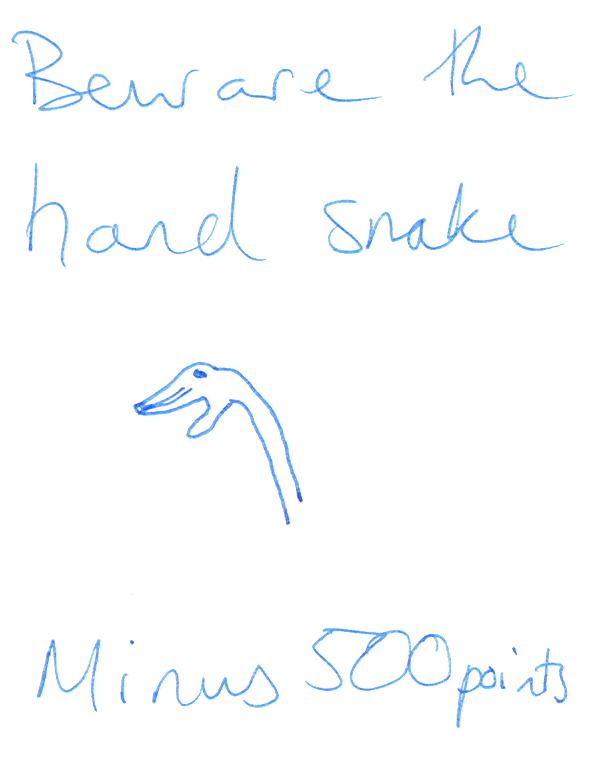 Beware the
hand snake
Minus 500 points